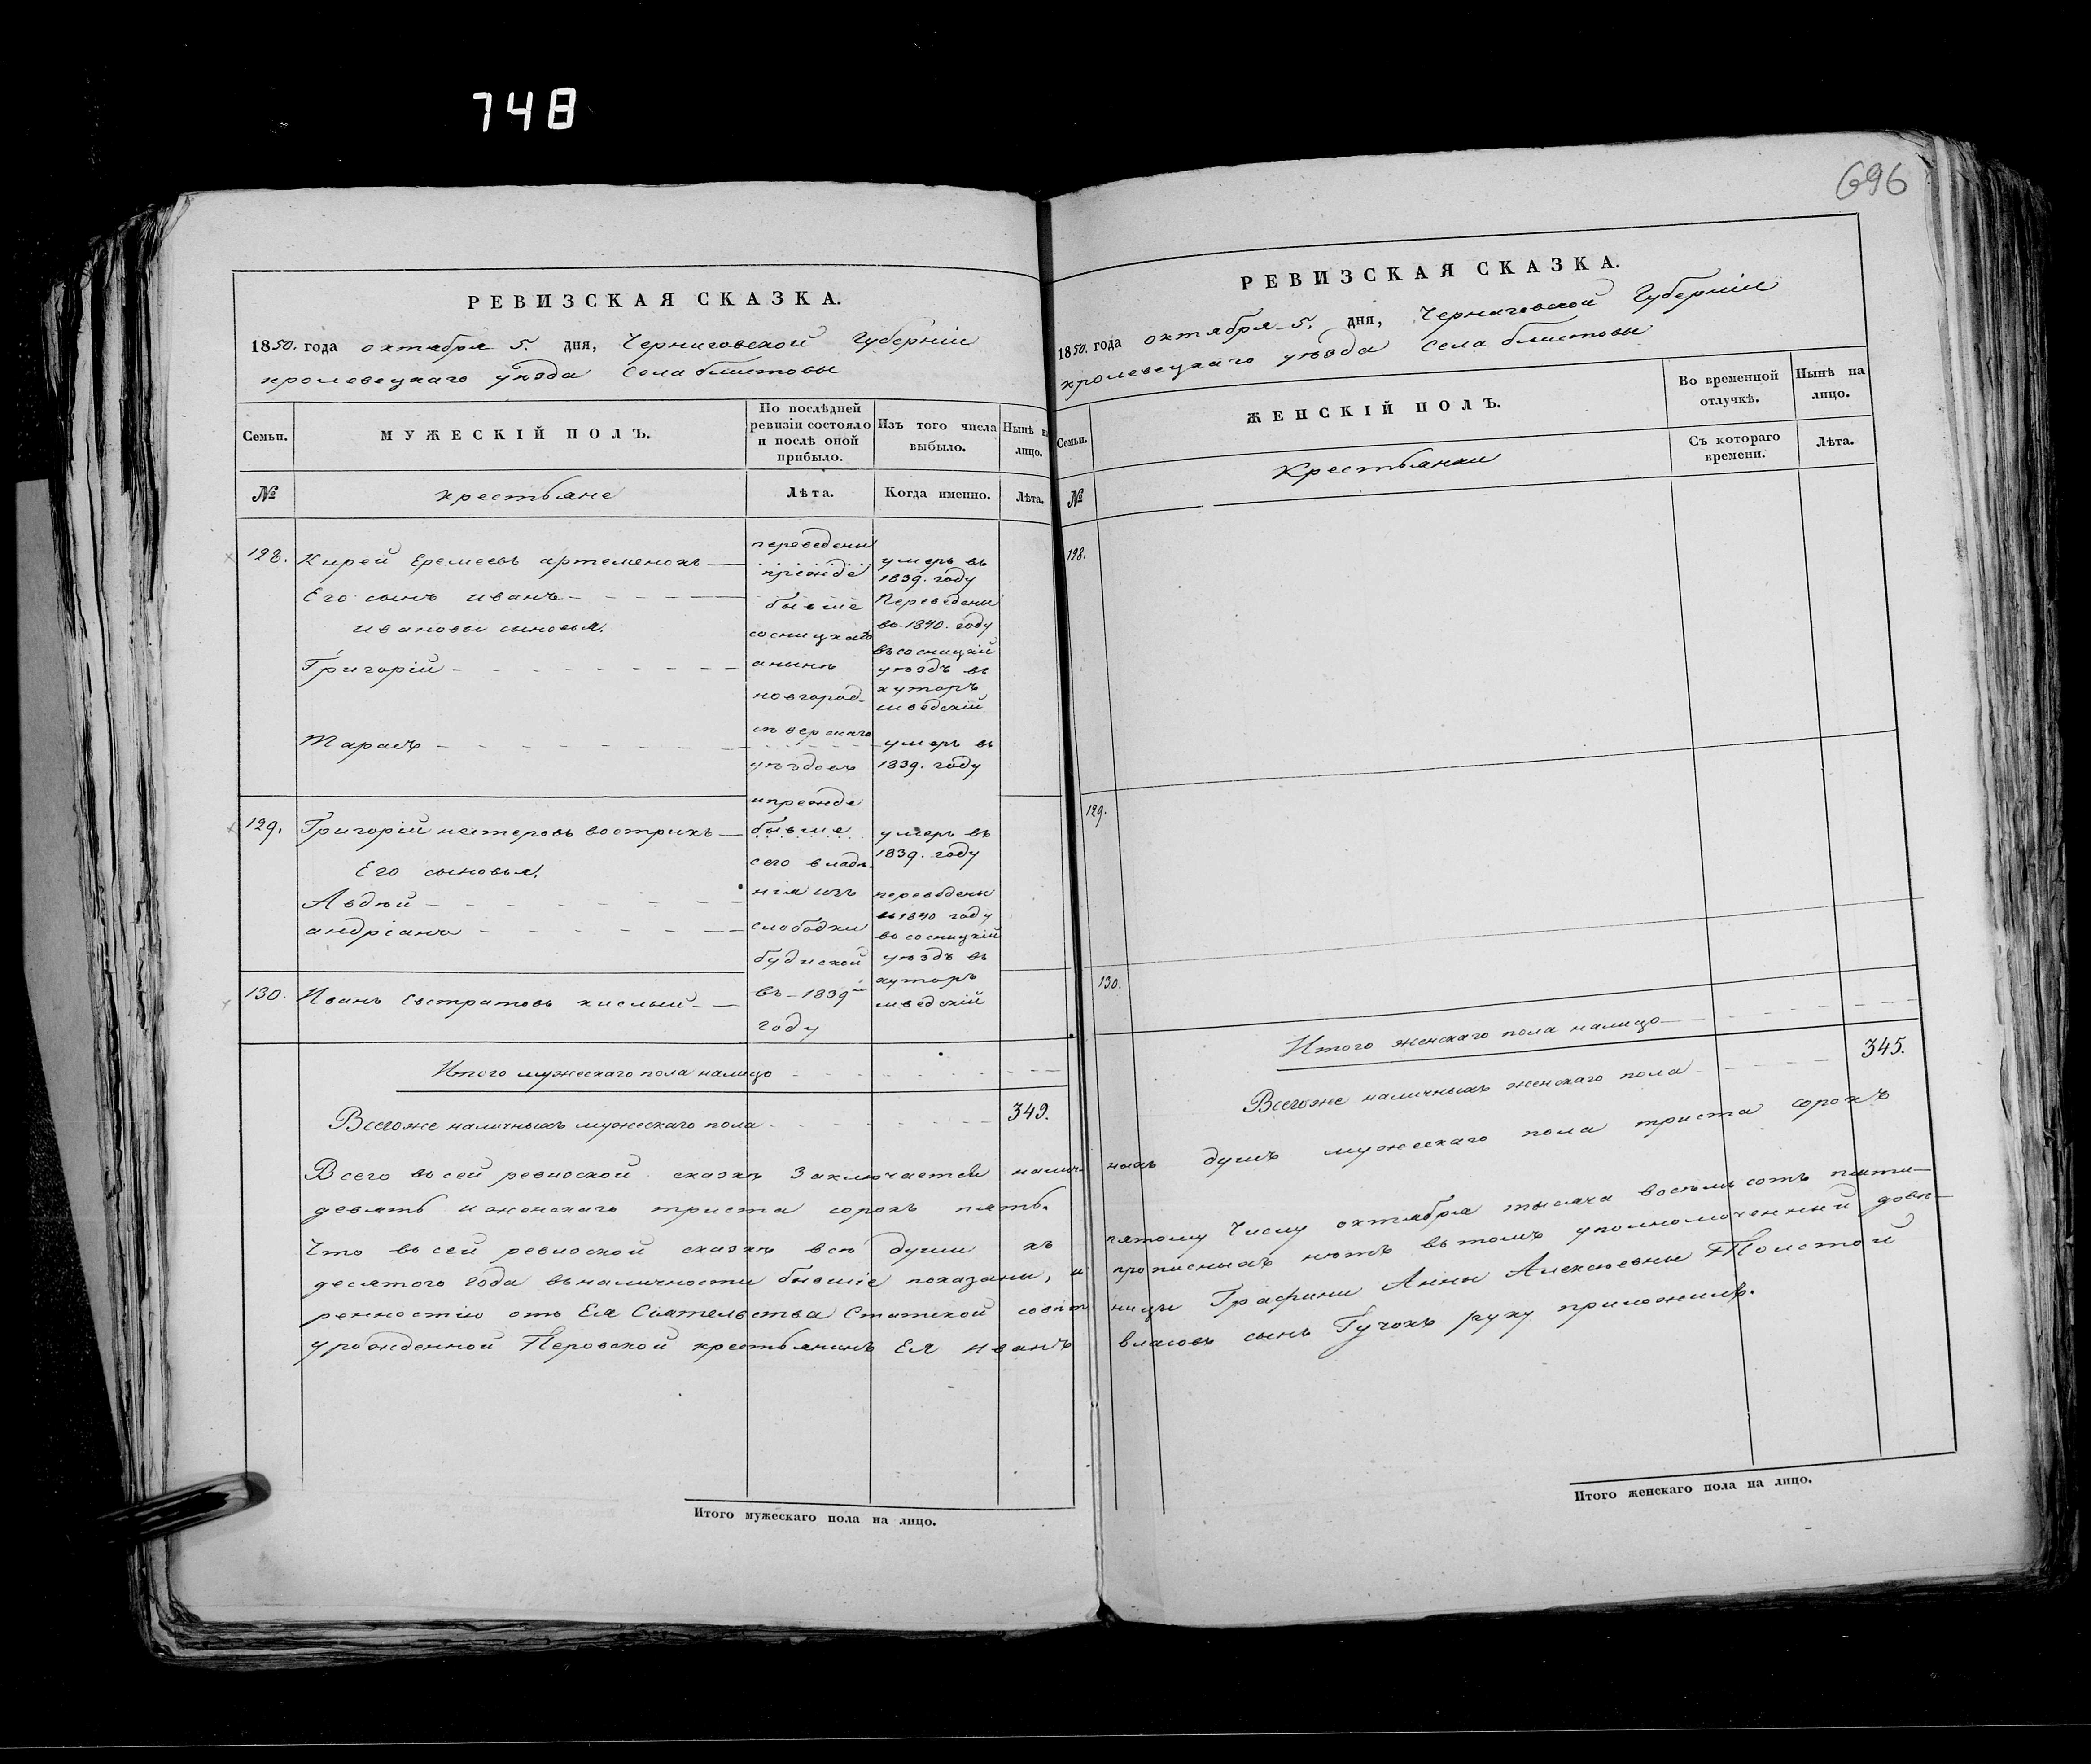 748
696
РЕВИЗСКАЯ СКАЗКА.
1850. года октября 5. дня, Черниговской Губерніи
кролевецкаго уѣзда Села блистовы
Семьи.
МУЖЕСКІЙ ПОЛЪ.
По послѣдней ревизіи состояло и послѣ оной прибыло.
Изъ того числа выбыло.
Нынѣ на лицо.
№
крестьяне
Лѣта.
Когда именно.
Лѣта.
128. Кирей Еремеевъ артеменокъ
Его сынъ иванъ
ивановы сыновья.
Григорій
Тарасъ
129. Григорій нестеровъ вострикъ
Его сыновья.
Авдѣй
андріанъ
130. Иванъ Евстратовъ кислый
переведены
прежде
бывше
сосницкаго
анынѣ
новгород-
сѣверскаго
уѣздовъ
ипрежде
бывше
сего владѣ-
нія изъ
слободки
будиской
въ 1839й
году
умеръ въ
1839. году
Переведены
во 1840. году
въ сосницкій
уѣздъ въ
хуторъ
шведскій
умеръ въ
1839. году
умеръ въ
1839. году
переведены
въ 1840 году
во сосницкій
уѣздъ въ
хуторъ
шведскій
Итого мужескаго пола налицо
Всегоже наличныхъ мужескаго пола 349.
РЕВИЗСКАЯ СКАЗКА.
1850. года октября 5. дня, Черниговской Губерніи
кролевецкаго уѣзда Села блистовы
Семьи.
ЖЕНСКІЙ ПОЛЪ.
Во временной отлучкѣ.
Нынѣ на лицо.
№
Крестьянки
Съ котораго времени.
Лѣта.
128.
129.
130.
Итого женскаго пола налицо
Всегоже наличныхъ женскаго пола 345.
Всего въ сей ревизской сказкѣ Заключается налич- ныхъ душъ мужескаго пола триста сорокъ
девять и женскаго триста сорокъ пять.
Что въ сей ревизской сказкѣ всѣ души къ пятому Числу октября тысяча восемь сотъ пяти-
десятого года въналичности бывшіе показаны, и прописныхъ нѣтъ вътомъ уполномоченный довѣ-
ренностію отъ Ея Сіятельства Статской совѣт ницы Графини Анны Алексѣевны Толстой
урожденной Перовской крестьянинъ Ея иванъ власовъ сынъ Гучокъ руку приложилъ.
Итого мужескаго пола на лицо.
Итого женскаго пола на лицо.